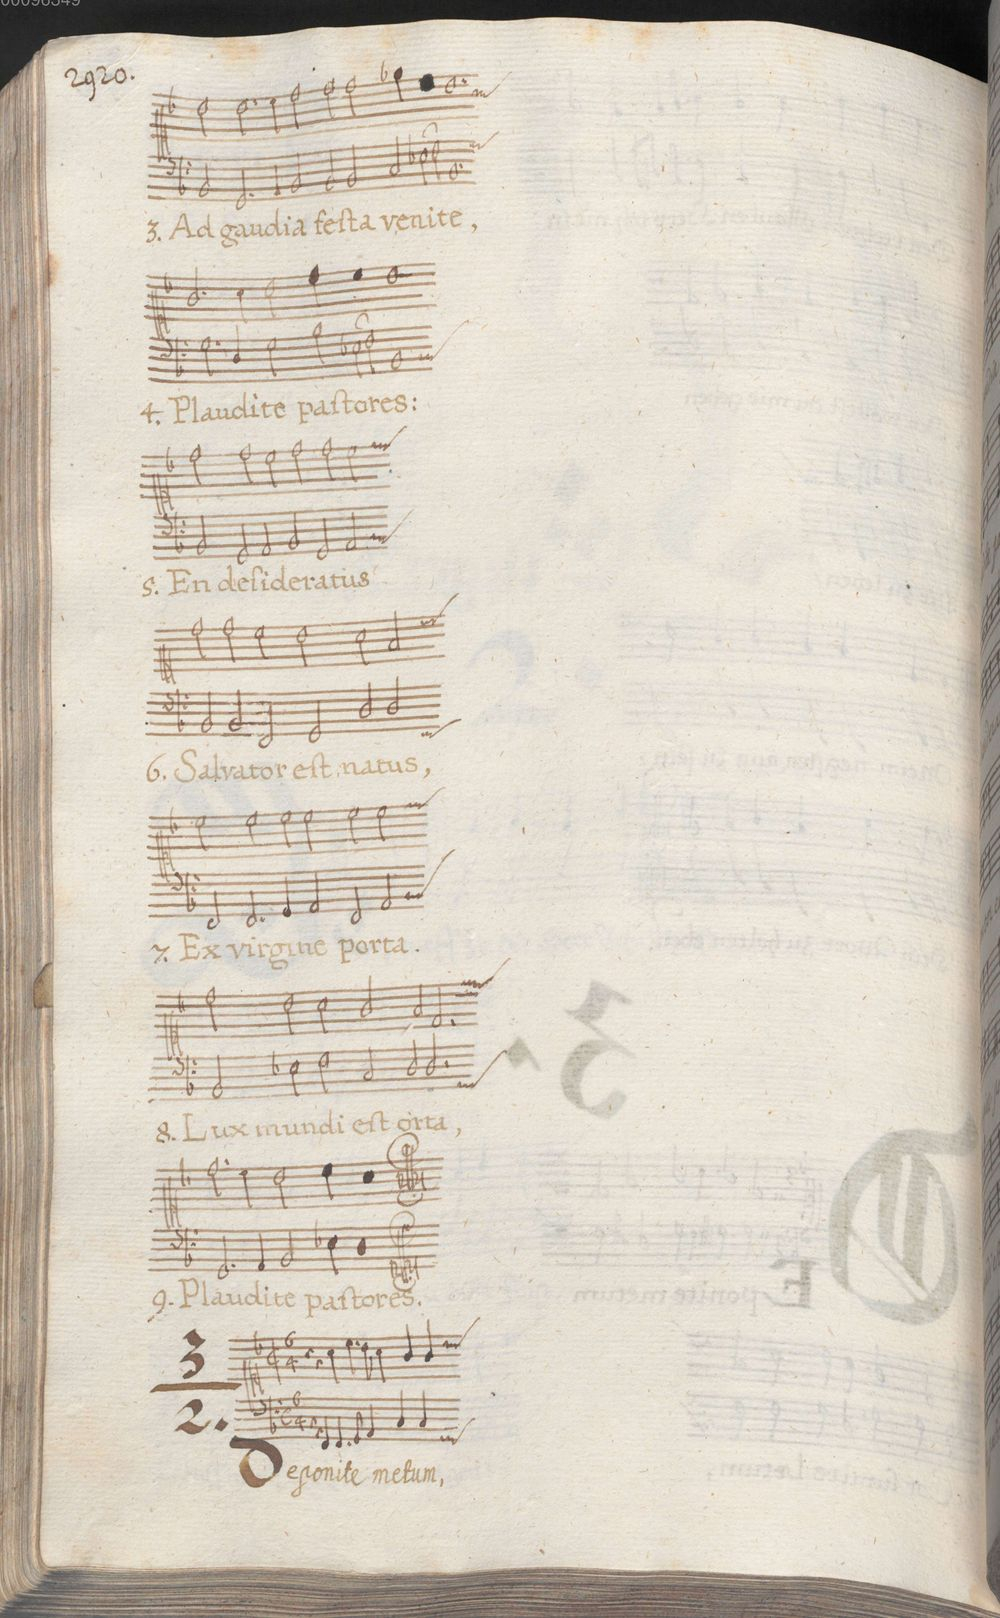 00098349
2920.
3. Ad gaudia feſta venite,
4. Plaudite paſtores:
5. En deſideratus
6. Salvator eſt natus,
7. Ex virgine porta.
8. Lux mundi eſt orta,
9. Plaudite paſtores.
3
2.
Deponite metum,